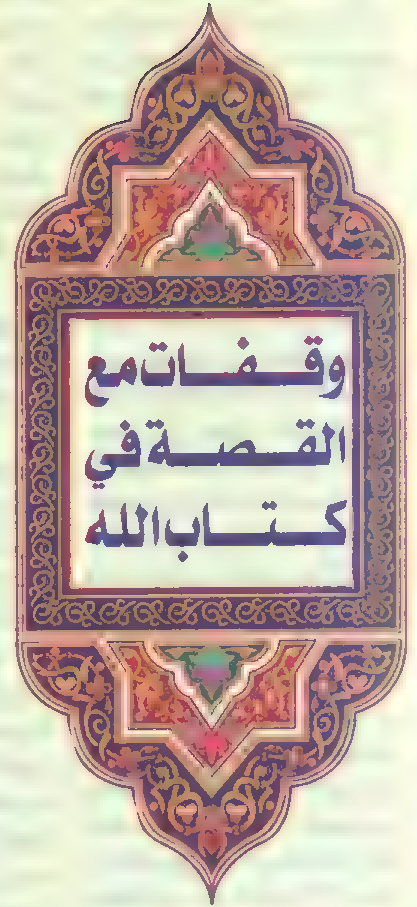 وقفات مع
القصة في
كتاب الله